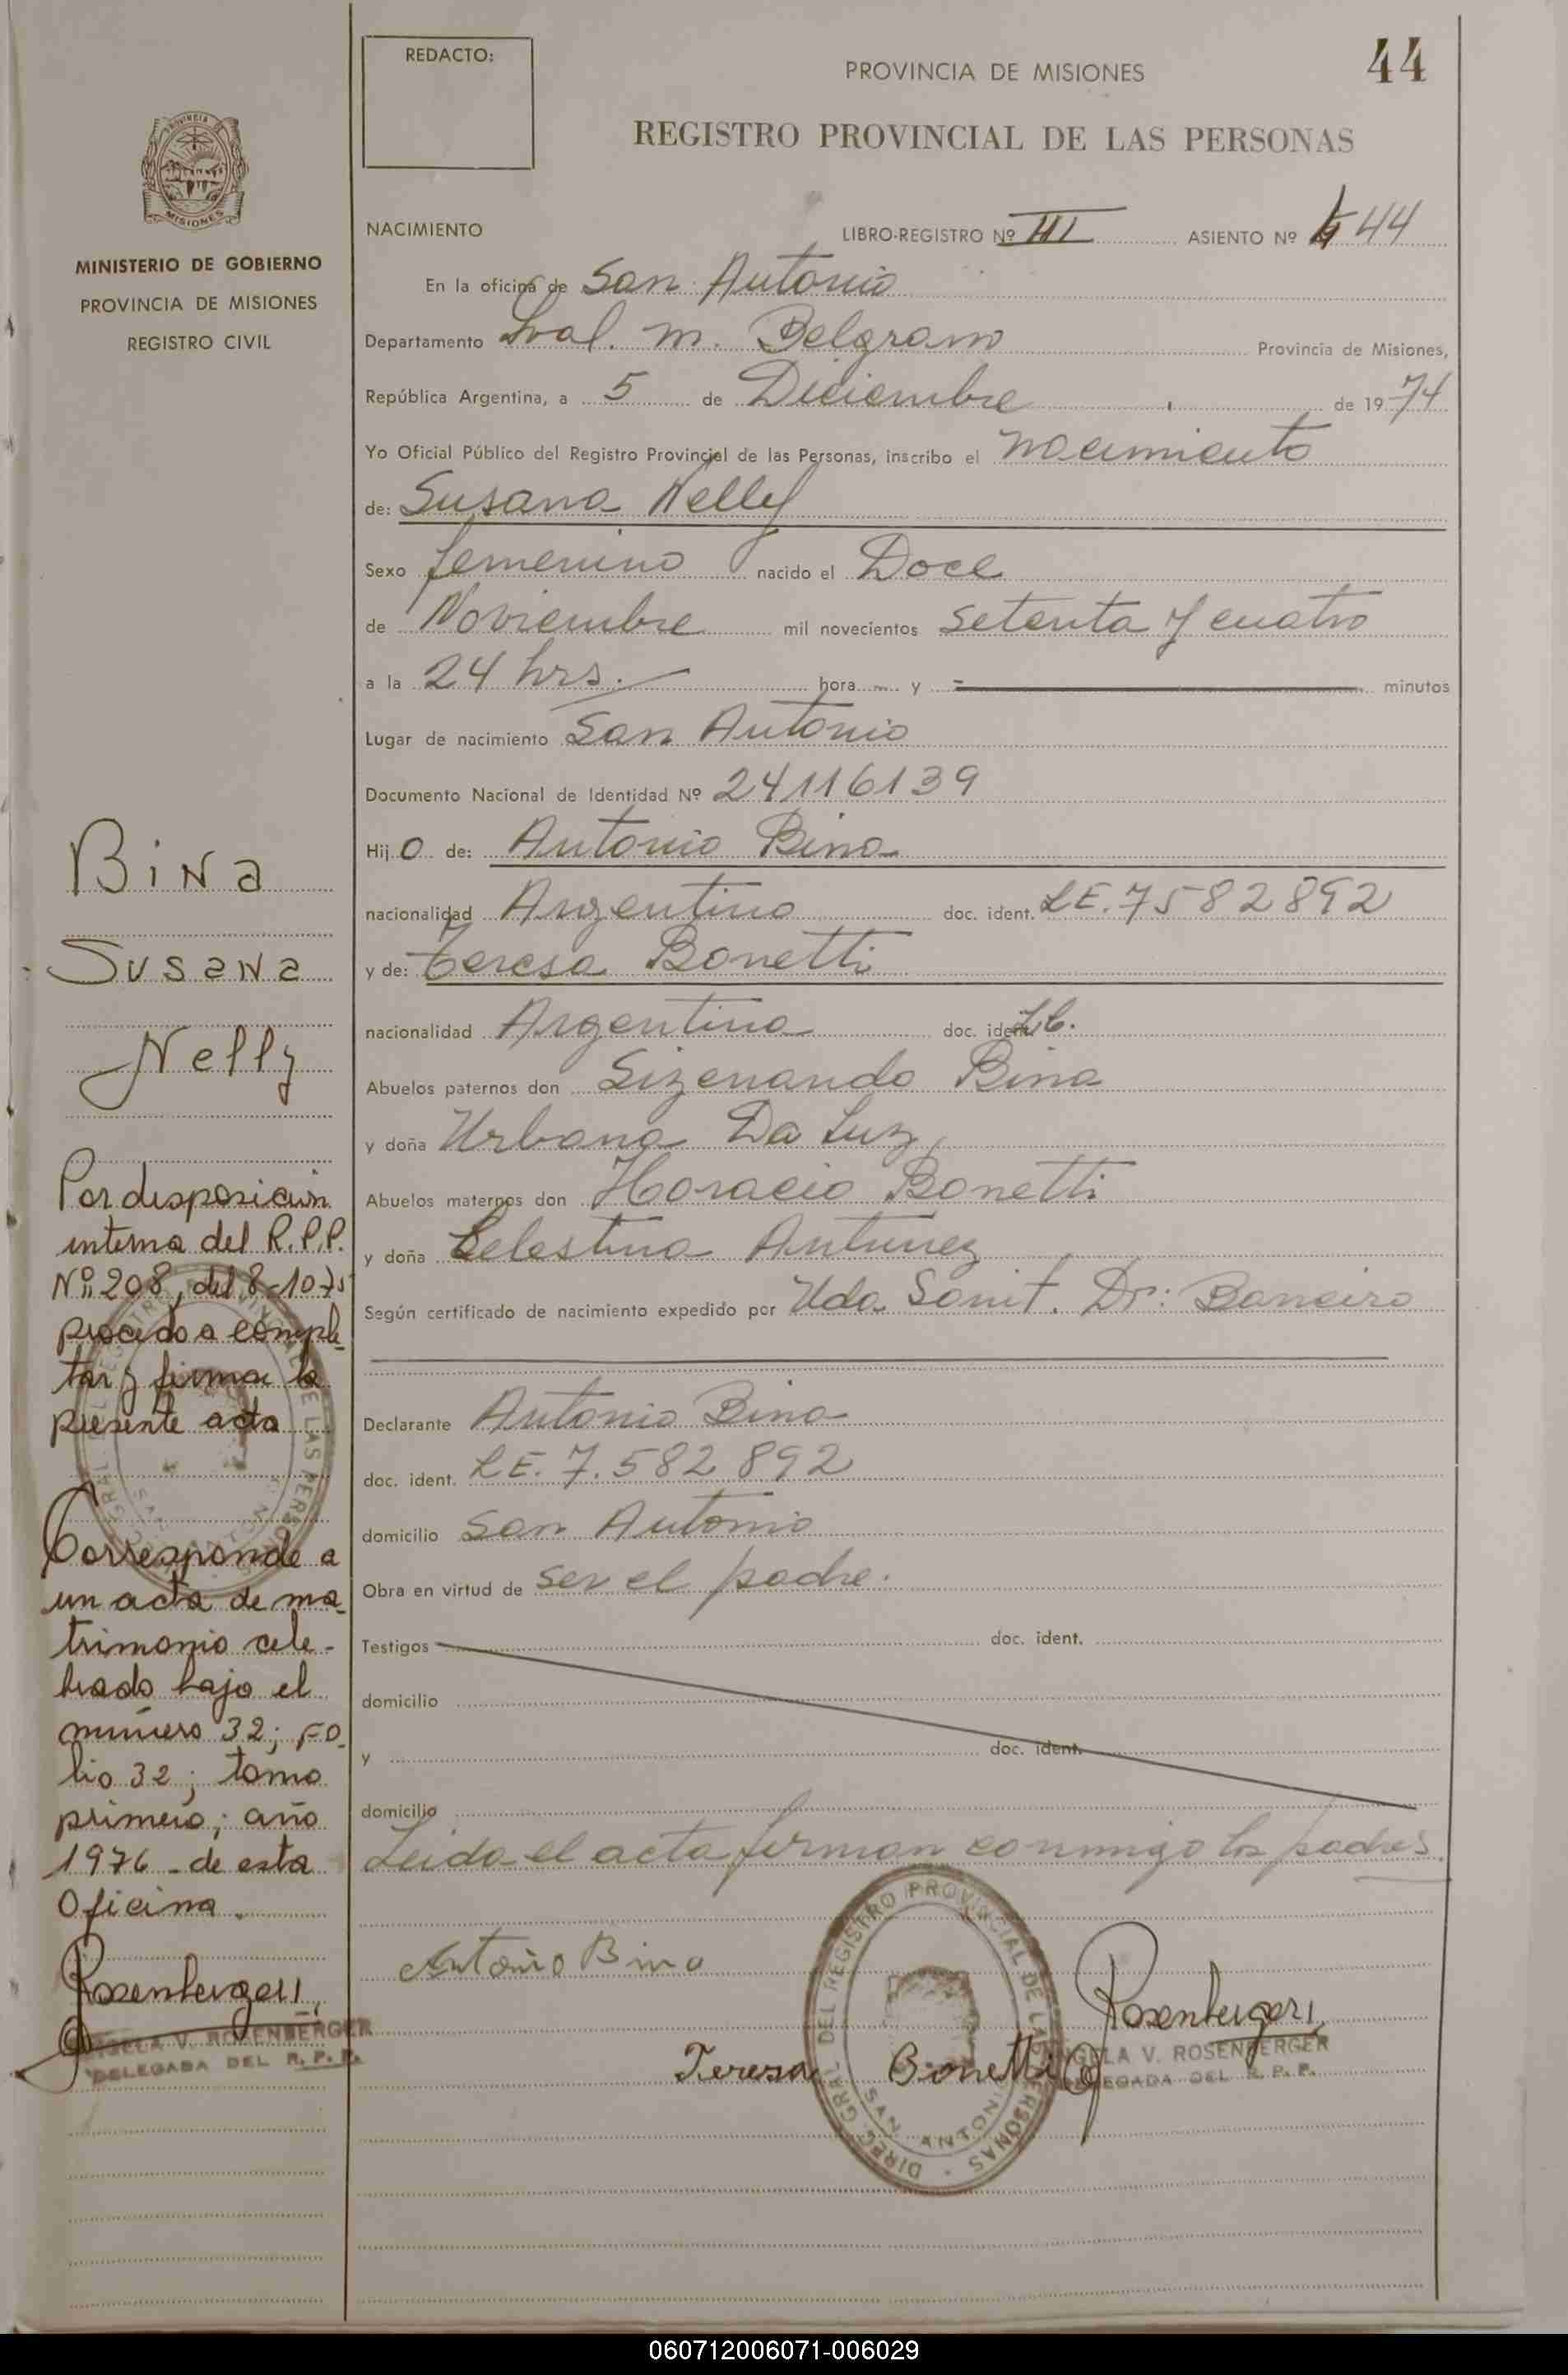 REDACTO:
PROVINCIA DE MISIONES
44
REGISTRO PROVINCIAL DE LAS PERSONAS
MISIONES
MINISTERIO DE GOBIERNO
PROVINCIA DE MISIONES
REGISTRO CIVIL
NACIMIENTO
LIBRO-REGISTRO Nº III ASIENTO Nº 44
En la oficina de San Antonio
Departamento Gral. M. Belgrano Provincia de Misiones,
República Argentina, a 5 de Diciembre de 1974
Yo Oficial Público del Registro Provincial de las Personas, inscribo el nacimiento
de: Susana Nelly
Sexo femenino nacido el Doce
de Noviembre mil novecientos setenta y cuatro
a la 24 hrs. hora y minutos
Lugar de nacimiento San Antonio
Documento Nacional de Identidad Nº 24116139
Hijo de: Antonio Bina
nacionalidad Argentino doc. ident. LE. 7582892
y de: Teresa Bonetti
nacionalidad Argentina doc. ident. L.C.
Abuelos paternos don Sizenando Bina
y doña Urbana Da Luz
Abuelos maternos don Horacio Bonetti
y doña Celestina Antunez
Según certificado de nacimiento expedido por Uda. Sanit. Dr:
Declarante Antonio Bina
doc. ident. LE. 7.582.892
domicilio San Antonio
Obra en virtud de ser el padre.
Testigos doc. ident.
domicilio
y doc. ident.
domicilio
Leida el acta firman conmigo los padres.
Antonio Bina
Teresa Bonetti
Rosenberger
GISELA V. ROSENBERGER
DELEGADA DEL R. P. P.
DIREC. GRAL. DEL REGISTRO PROVINCIAL DE LAS PERSONAS
SAN ANTONIO
Bina
Susana
Nelly
Por disposicion
interna del R.P.P.
Nº 208, del 8-10-75
procedo a comple
tar y firmar la
presente acta
Corresponde a
un acta de ma
trimonio cele-
brado bajo el
número 32; Fo
lio 32; tomo
primero; año
1976 - de esta
Oficina.
Rosenberger
GISELA V. ROSENBERGER
DELEGADA DEL R. P. P.
060712006071-006029